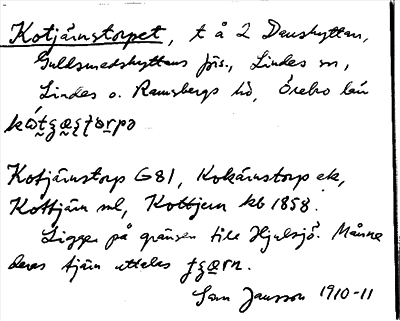 Kotjärnstorpet, t å 2 Danshyttan,
Gullsmedshyttans jbs., Lindes sn,
Lindes o. Ramsbergs hd, Örebro län
Kotjärnstorp G81, Kokärnstorp ek,
Kottjärn ml, Kottjern kb 1858.
Ligger på gränsen till Hjulsjö. Månne
deras tjärn uttalas
Sam Jansson 1910-11